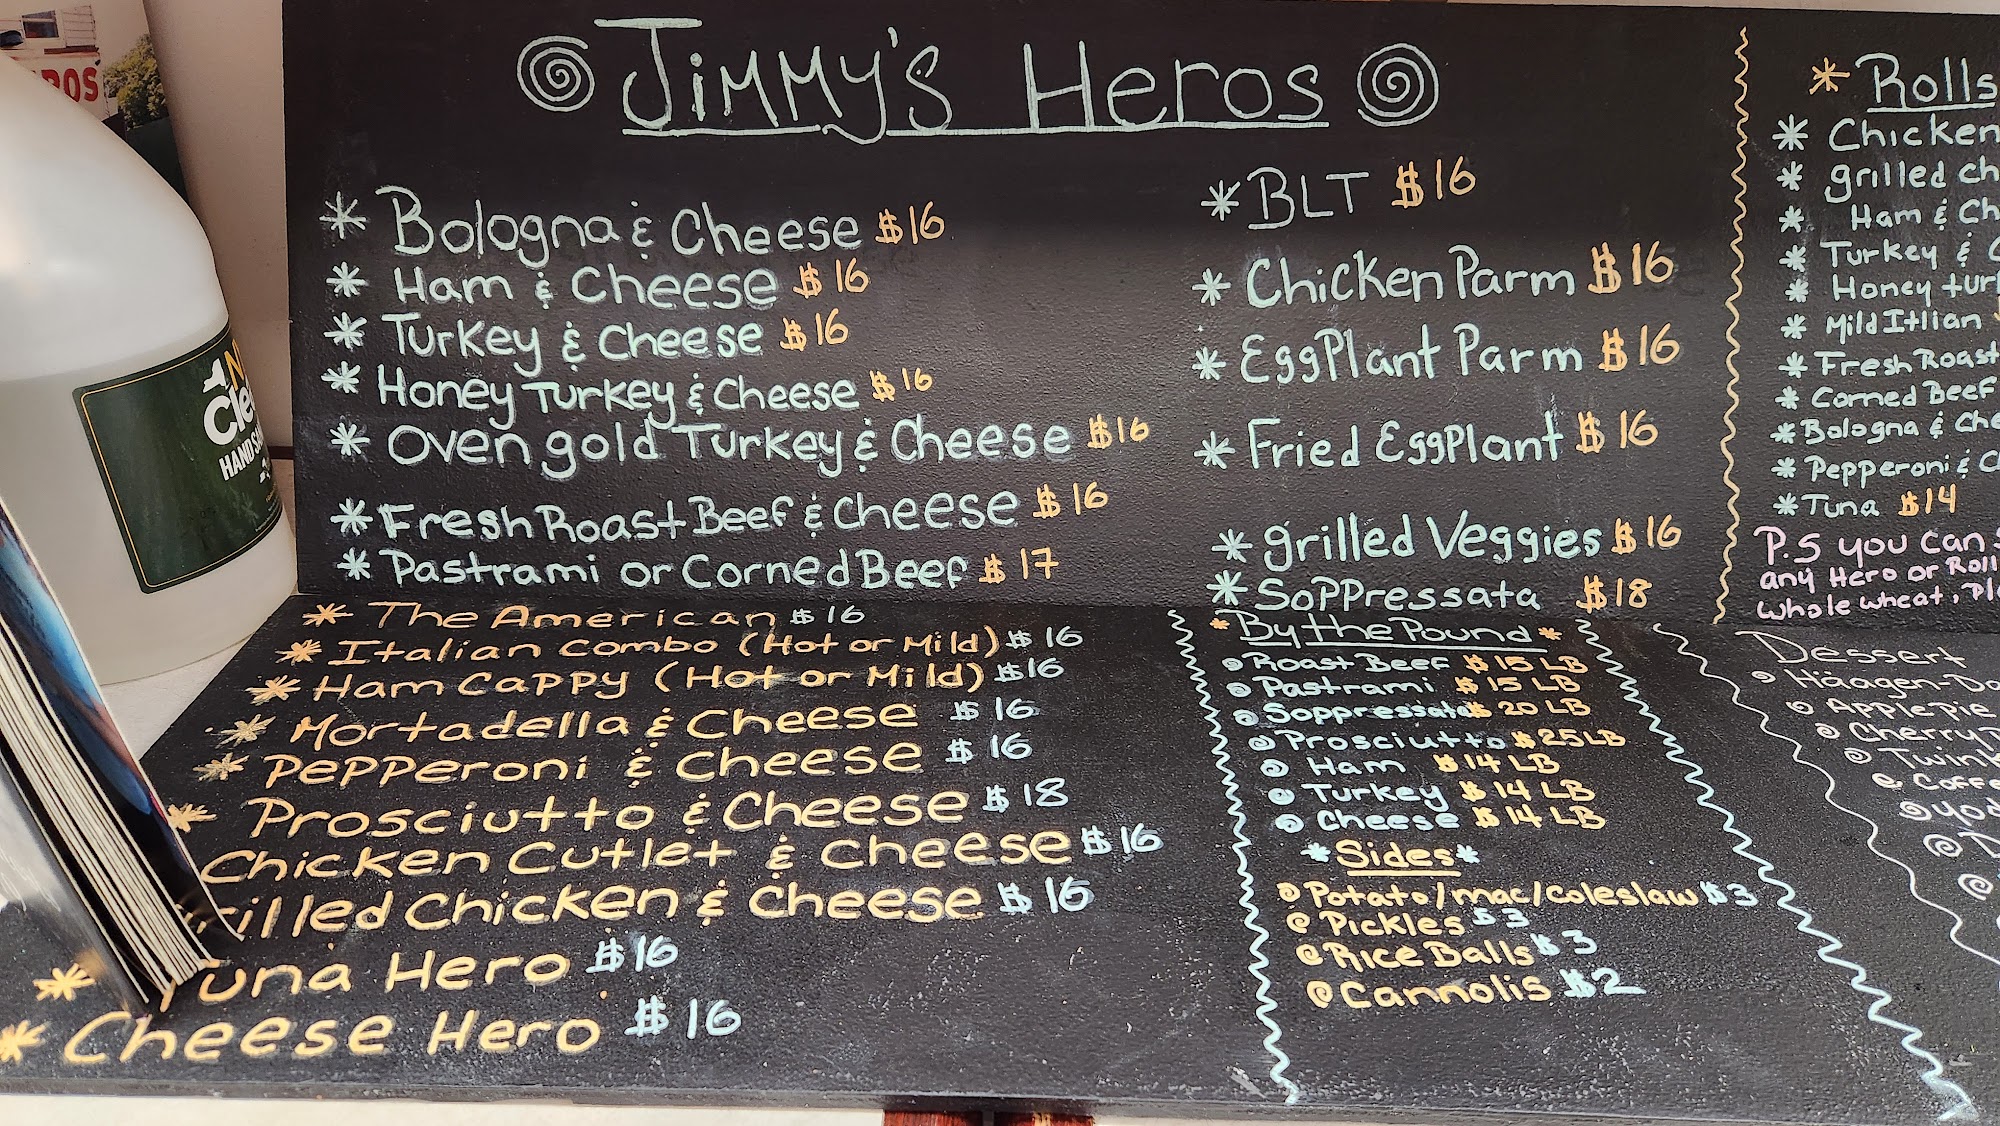 Jimmy's Heros
* Bologna & Cheese $16
* Ham & Cheese $16
* Turkey & Cheese $16
* Honey Turkey & Cheese $16
* Oven gold Turkey & Cheese $16
* Fresh Roast Beef & Cheese $16
* Pastrami or Corned Beef $17
* The American $16
* Italian Combo (Hot or Mild) $16
* Ham Cappy (Hot or Mild) $16
* Mortadella & Cheese $16
* Pepperoni & Cheese $16
* Prosciutto & Cheese $18
Chicken Cutlet & Cheese $16
rilled Chicken & Cheese $16
* una Hero $16
* Cheese Hero $16
* BLT $16
* Chicken Parm $16
* EggPlant Parm $16
* Fried EggPlant $16
* grilled Veggies $16
* Soppressata $18
* By the Pound *
Roast Beef $15 LB
Pastrami $15 LB
Soppressata $20 LB
Prosciutto $25 LB
Ham $14 LB
Turkey $14 LB
Cheese $14 LB
* Sides *
Potato/mac/coleslaw $3
Pickles $3
Rice Balls $3
Cannolis $2
* Rolls
* Chicken
* grilled ch
* Ham & Ch
* Turkey & C
* Honey turk
* Mild Itlian
* Fresh Roast
* Corned Beef
* Bologna & Che
* Pepperoni & C
* Tuna $14
P.S you can s
any Hero or Roll
whole wheat, Pl
Dessert
Häagen-Da
Apple Pie
Cherry P
Twink
Coffe
Yod
D
OS
Cle
HAND S